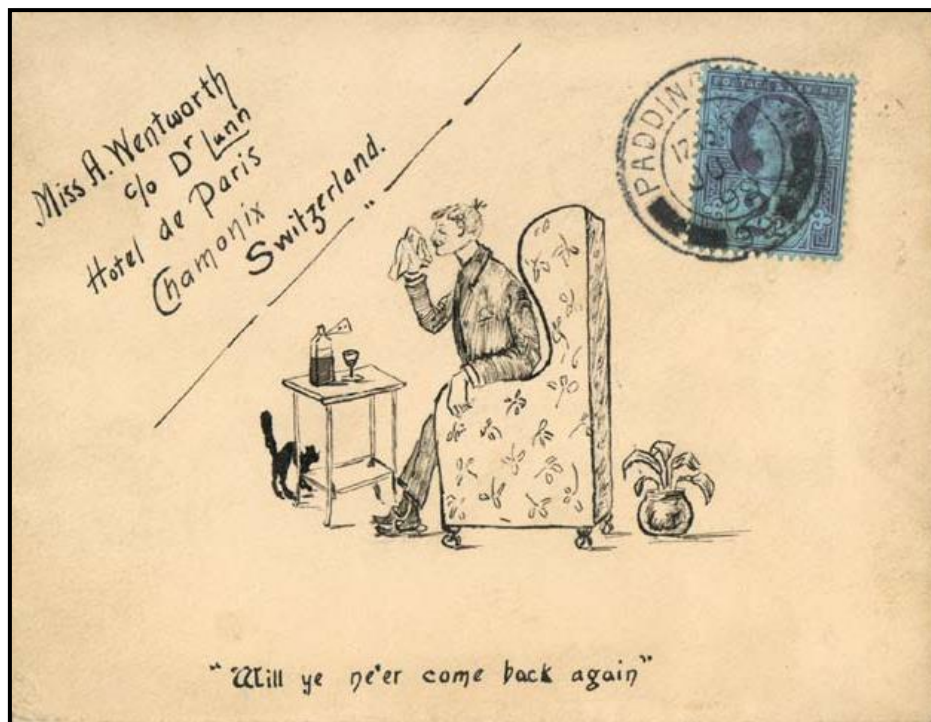 Miss A. Wentworth
c/o Dr Lunn
Hotel de Paris
Chamonix
Switzerland.
"Will ye ne'er come back again"